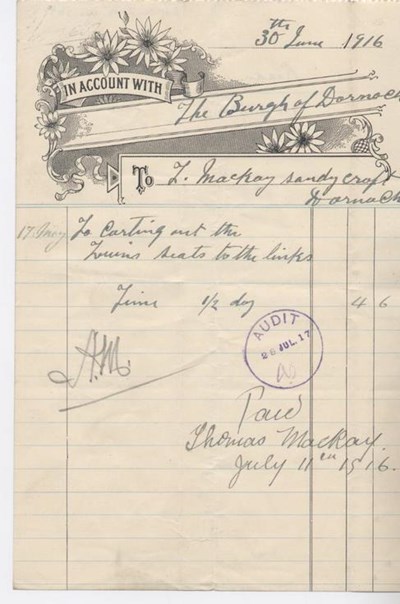 30th June 1916
IN ACCOUNT WITH
The Burgh of Dornoch
To T. Mackay Sandycroft
Dornoch
17 May To Carting out the
Seats to the links
Time 1/2 day 4 6
A.M.
AUDIT
26 JUL. 17
Paid
Thomas Mackay.
July 11th 1916.